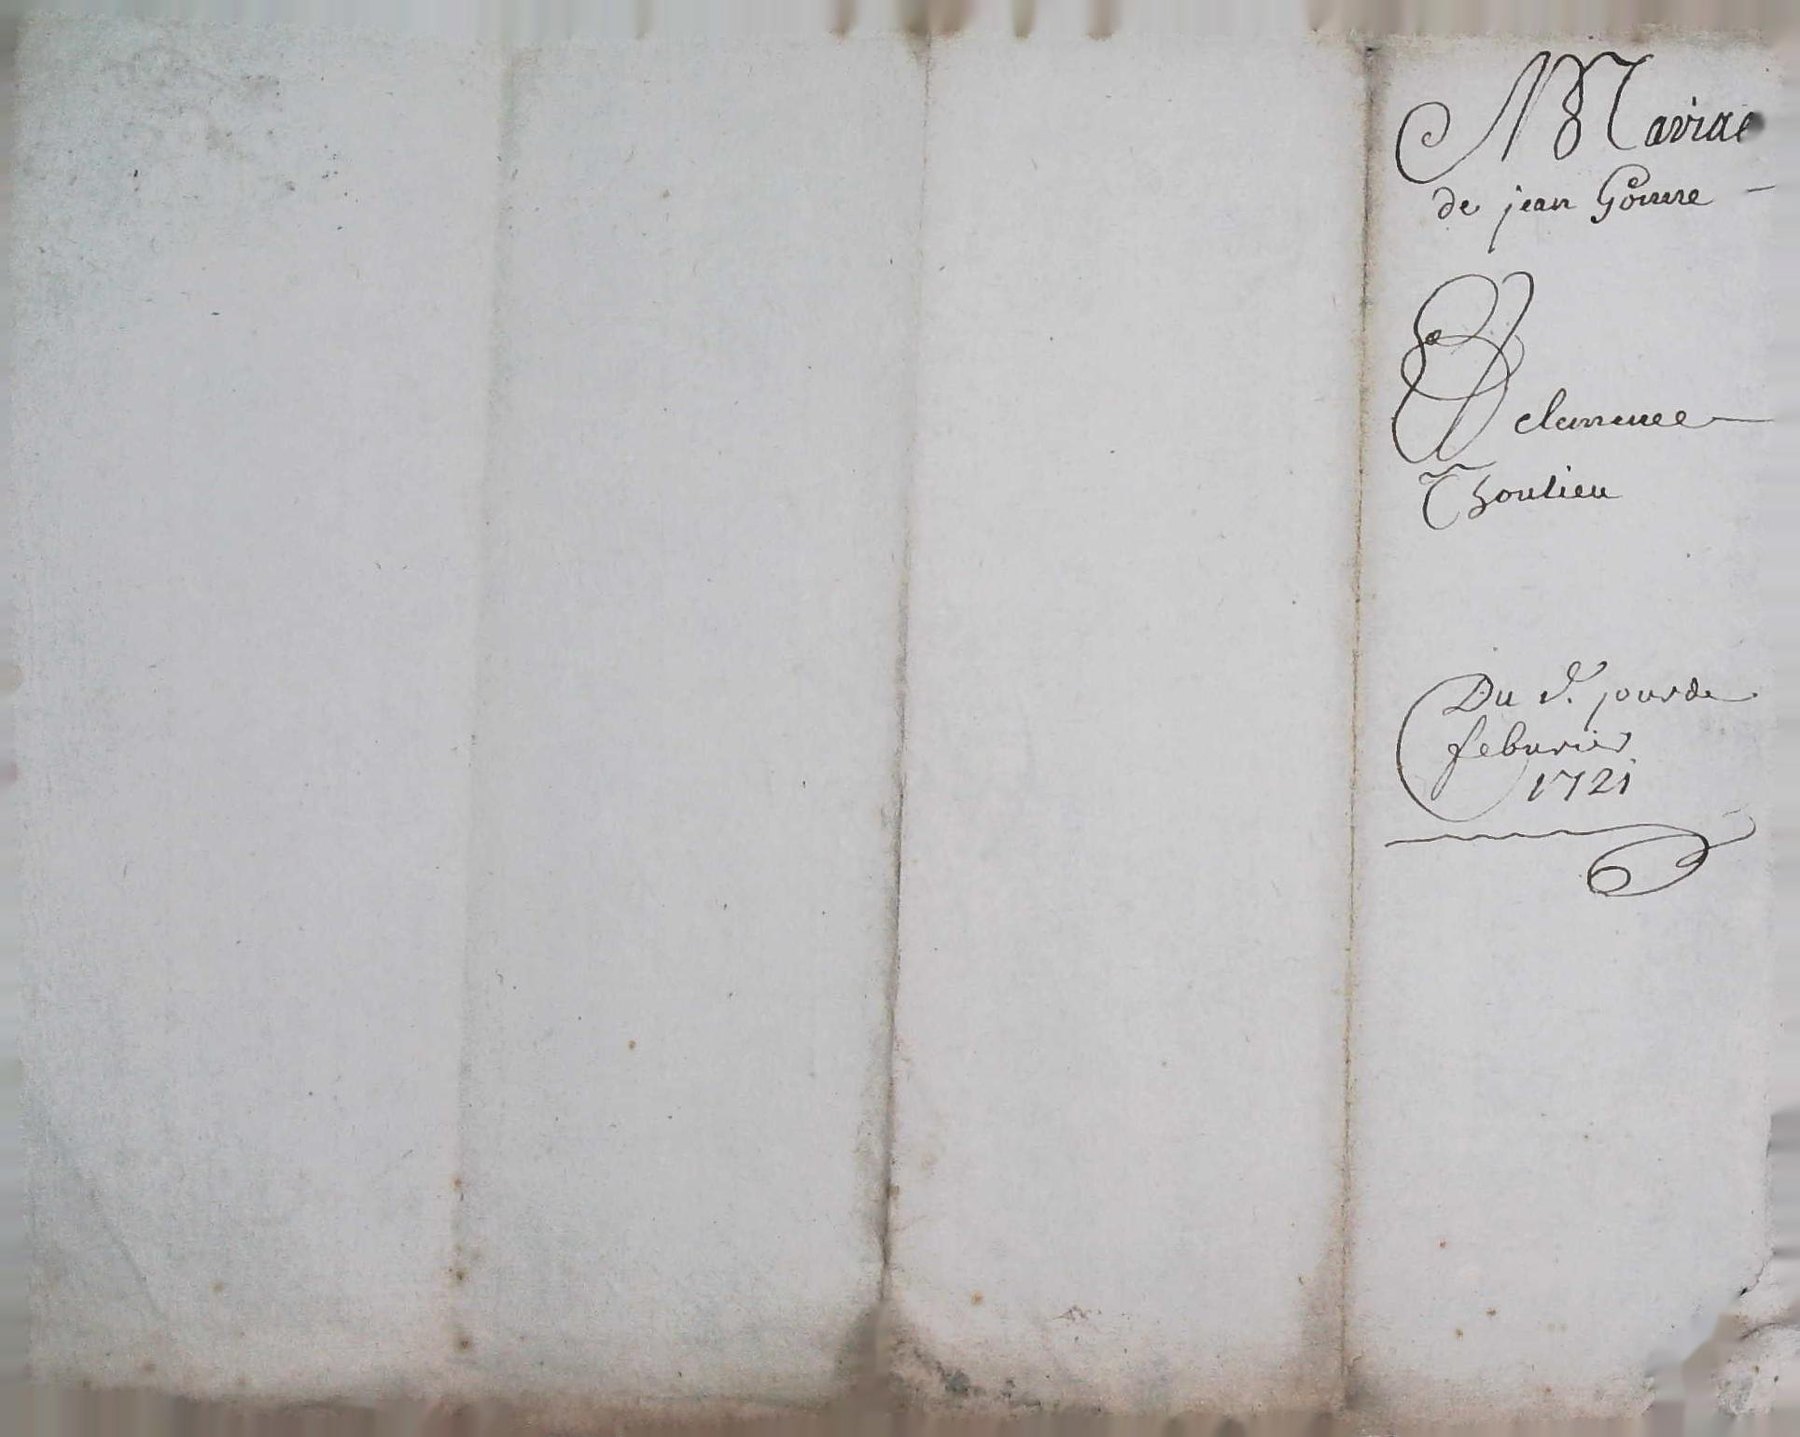 Mariae
de jean Gourre
Et clemence
Thoulieu
Du 5e. jour de
feburier
1721